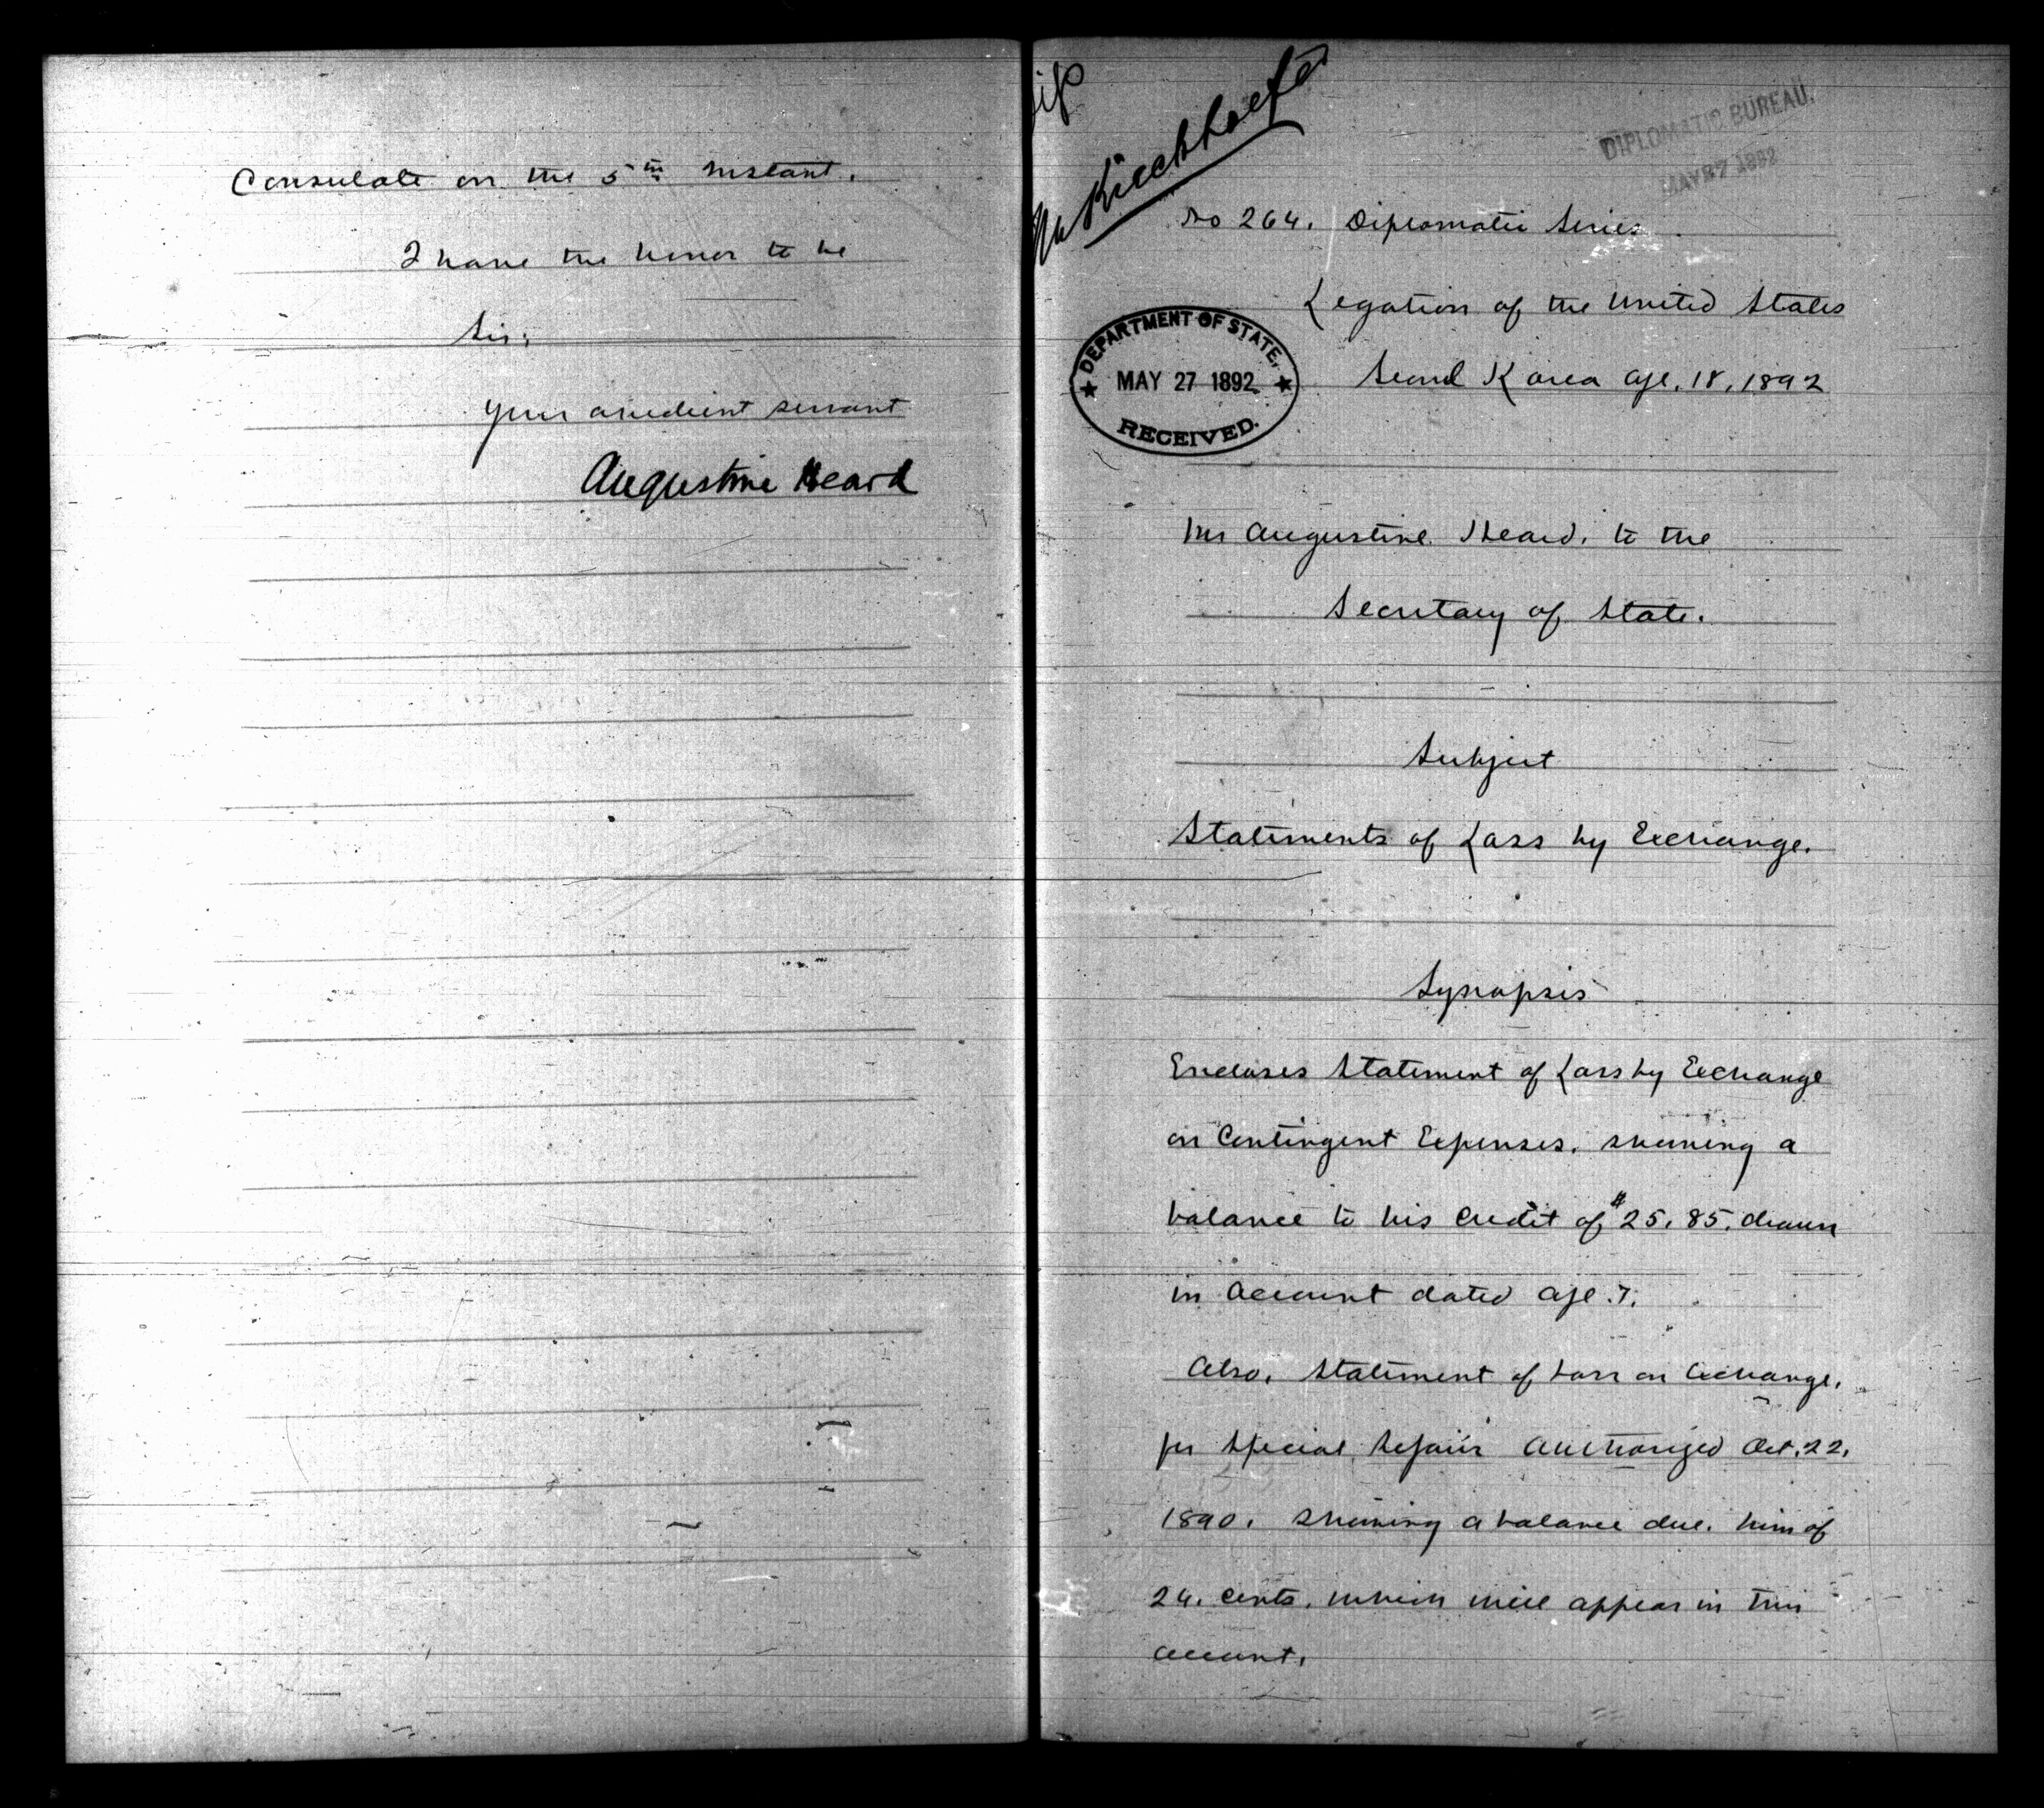 Consulate on the 5th instant.
I have the honor to be
Sir:
Your obedient servant
Augustine Heard
Mr Kirchhoefer
DIPLOMATIC BUREAU.
MAY 27 1892
No 264. Diplomatic Series
Legation of the United States
Seoul Korea Apl. 18, 1892
DEPARTMENT OF STATE,
MAY 27 1892
RECEIVED.
Mr Augustine Heard, to the
Secretary of State.
Subject
Statements of Loss by Exchange.
Synopsis
Encloses Statement of Loss by Exchange
on Contingent Expenses, showing a
balance to his credit of $25.85. drawn
in account dated Apl. 7.
Also, Statement of Loss on Exchange,
for Special Repairs authorized Oct. 22,
1890. showing a balance due. him of
24. cents. which will appear in this
account.